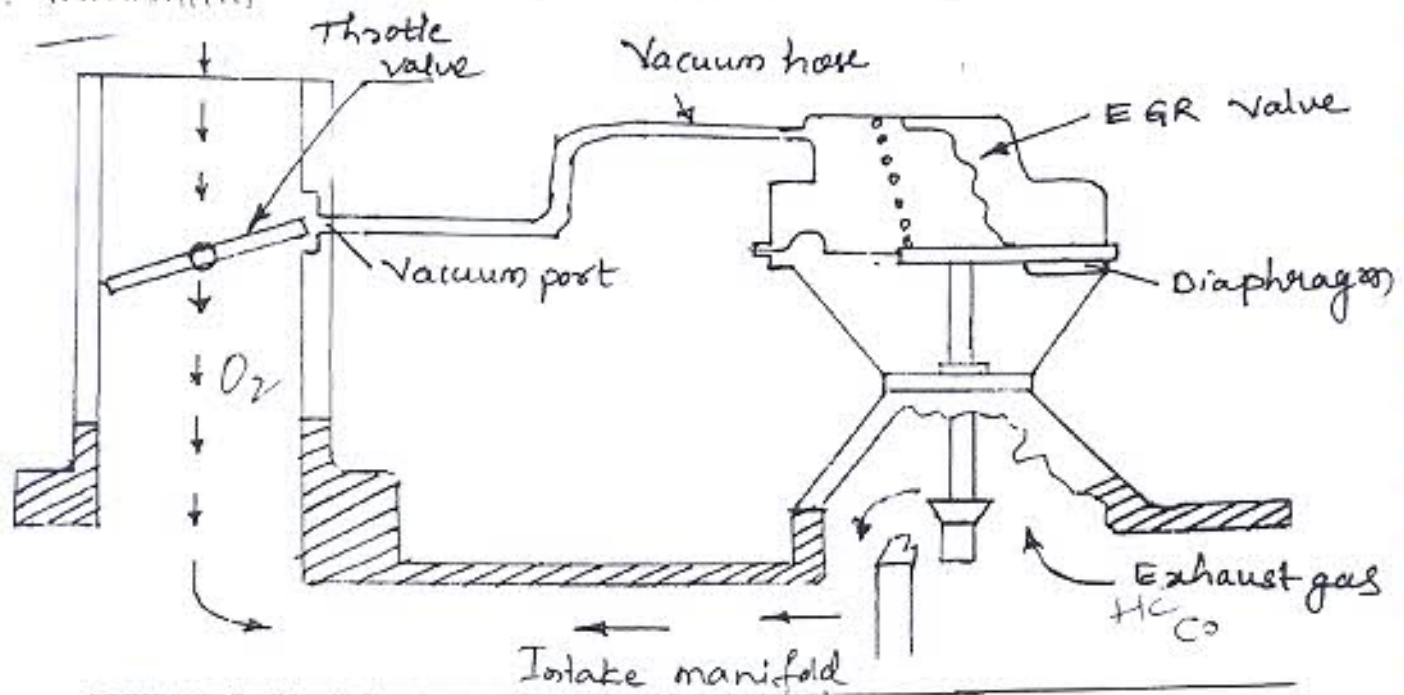 Throttle
valve
Vacuum hose
EGR Valve
Vacuum port
Diaphragm
O2
Exhaust gas
HC
CO
Intake manifold